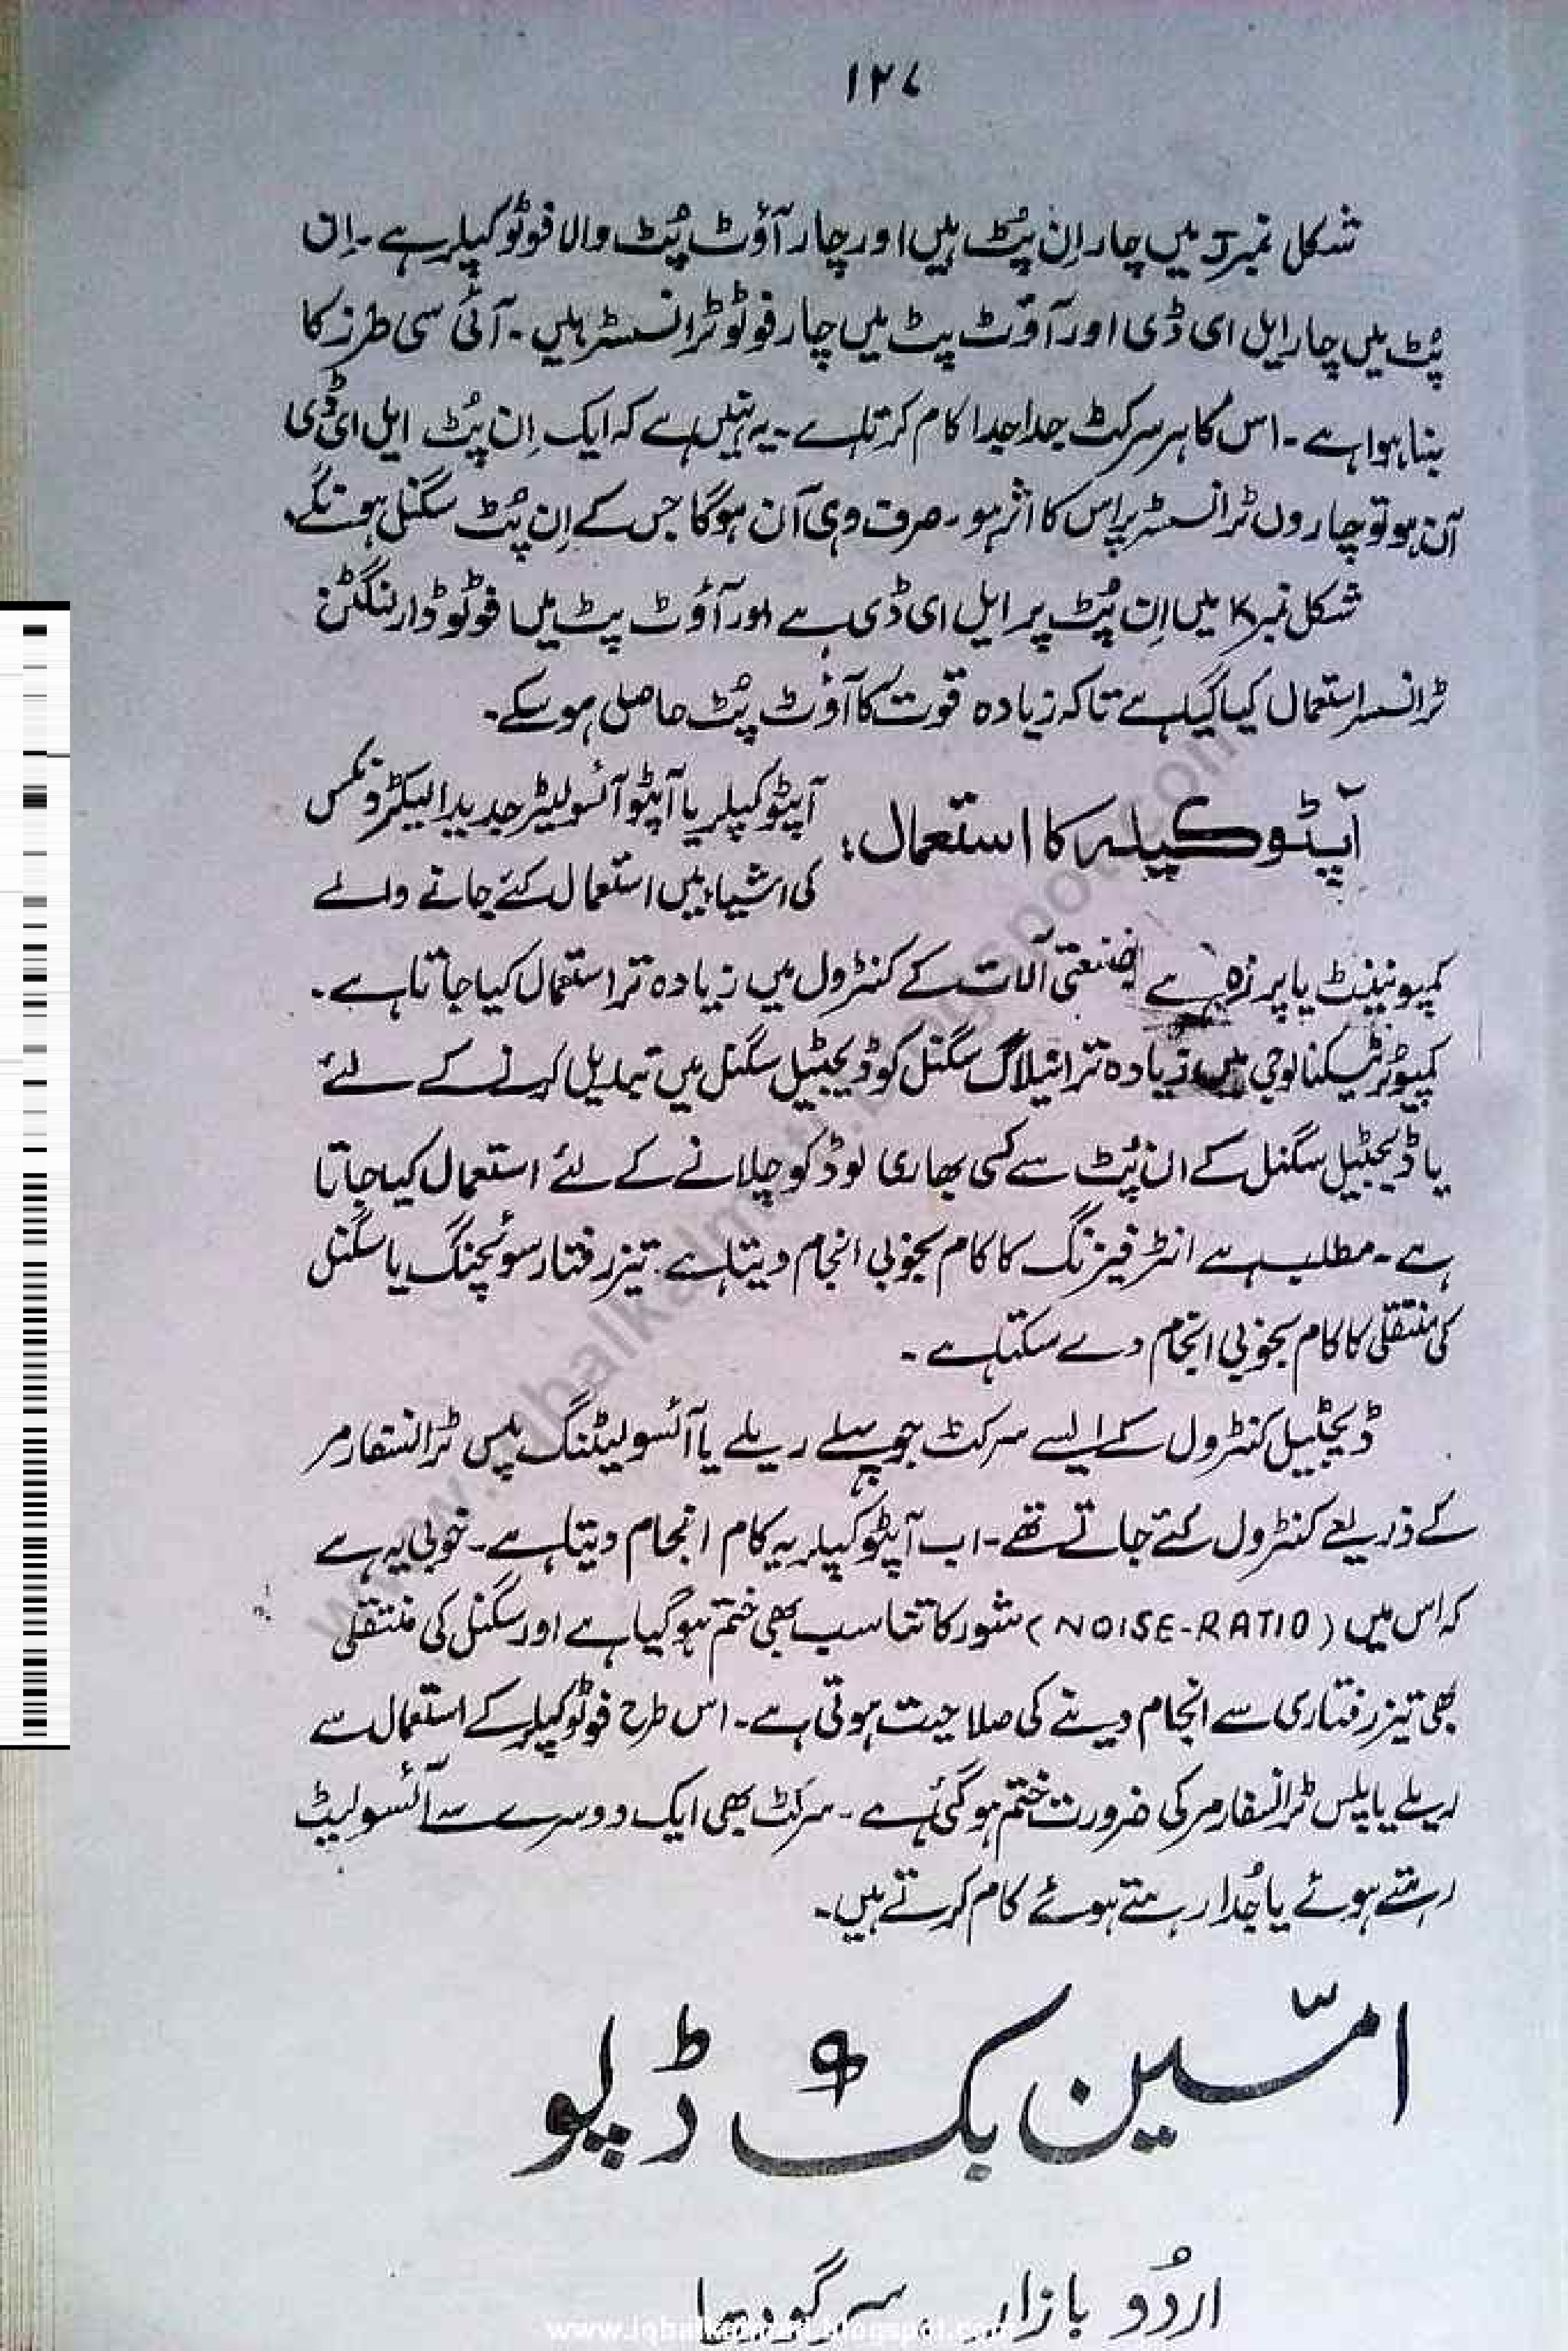 ۱۲۷
شکل نمبر J میں چار اِن پُٹ ہیں اور چار آؤٹ پُٹ والا فوٹو کپلر ہے۔ اِن
پُٹ میں چار ایل ای ڈی اور آؤٹ پٹ میں چار فوٹو ٹرانسسٹر ہیں۔ آئی سی طرز کا
بنا ہوا ہے۔ اس کا ہر سرکٹ جدا جدا کام کرتا ہے۔ یہ نہیں ہے کہ ایک اِن پُٹ ایل ای ڈی
آن ہو تو چاروں ٹرانسسٹر پر اس کا اثر ہو۔ صرف وہی آن ہوگا جس کے اِن پُٹ سگنل ہونگے۔
شکل نمبر K میں اِن پُٹ پر ایل ای ڈی ہے اور آؤٹ پٹ میں فوٹو ڈارلنگٹن
ٹرانسسٹر استعمال کیا گیا ہے تاکہ زیادہ قوت کا آؤٹ پُٹ حاصل ہو سکے۔
آپٹو کپلر کا استعمال؛
آپٹو کپلر یا آپٹو آئسولیٹر جدید الیکٹرونکس
کی اشیاء میں استعمال کئے جانے والے
کمپونینٹ یا پرزہ ہے صنعتی آلات کے کنٹرول میں زیادہ تر استعمال کیا جاتا ہے۔
کمپیوٹر ٹیکنالوجی میں زیادہ تر اینلاگ سگنل کو ڈیجٹیل سگنل میں تبدیل کرنے کے لئے
یا ڈیجٹیل سگنل کے ان پُٹ سے کسی بھاری لوڈ کو چلانے کے لئے استعمال کیا جاتا
ہے۔ مطلب ہے انٹرفیزنگ کا کام بخوبی انجام دیتا ہے۔ تیز رفتار سوئچنگ یا سگنل
کی منتقلی کا کام بخوبی انجام دے سکتا ہے۔
ڈیجٹیل کنٹرول کے ایسے سرکٹ جو پہلے ریلے یا آئسولیٹنگ پلس ٹرانسفارمر
کے ذریعے کنٹرول کئے جاتے تھے۔ اب آپٹو کپلر یہ کام انجام دیتا ہے۔ خوبی یہ ہے
کہ اس میں (NOISE-RATIO) شور کا تناسب بھی ختم ہو گیا ہے اور سگنل کی منتقلی
بھی تیز رفتاری سے انجام دینے کی صلاحیت ہوتی ہے۔ اس طرح فوٹو کپلر کے استعمال سے
ریلے یا پلس ٹرانسفارمر کی ضرورت ختم ہو گئی ہے۔ سرکٹ بھی ایک دوسرے سے آئسولیٹ
رہتے ہوئے یا جُدا رہتے ہوئے کام کرتے ہیں۔
امین بک ڈپو
اردُو بازار سرگودہا
www.iqbalkalmati.blogspot.com